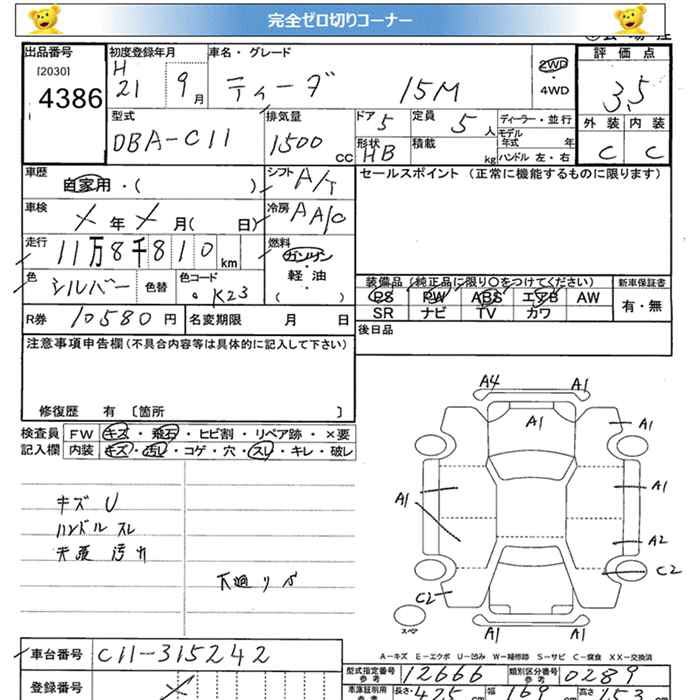 完全ゼロ切りコーナー
出品番号 初度登録年月 車名・グレード 2WD 評価点
[2030] H
4386 21 9月 ティーダ 15M 4WD 3.5
型式 排気量 ドア 5 定員 5人 ディーラー・並行 外装 内装
DBA-C11 1500cc 形状 HB 積載 kg モデル年式 年 C C
ハンドル 左・右
車歴 自家用・( ) シフト A/T セールスポイント (正常に機能するものに限ります)
車検 × 年 × 月( 日) 冷房 AA/C
走行 11万8千810km 燃料 ガソリン
軽・油
( )
色 シルバー 色替 色コード K23 装備品 (純正品に限り○をつけてください) 新車保証書
PS PW ABS エアB AW 有・無
SR ナビ TV カワ
R券 10580円 名変期限 月 日 後日品
注意事項申告欄(不具合内容等は具体的に記入して下さい)
修復歴 有 〔箇所 〕
検査員 FW キズ・飛石・ヒビ割・リペア跡・×要
記入欄 内装 キズ・汚れ・コゲ・穴・スレ・キレ・破レ
キズ U
ハンドル スレ
天張 汚れ
下廻りサビ
A4 A1
A1 A1
A1 A1
A2
C2 C2
スペア A1 A1
A-キズ E-エクボ U-凹み W-補修跡 S-サビ C-腐食 XX-交換済
車台番号 C11-315242
型式指定番号 参考 12666 類別区分番号 参考 0289
登録番号 ×
車庫証明用 参考 長さ 425 cm 幅 169 cm 高さ 153 cm